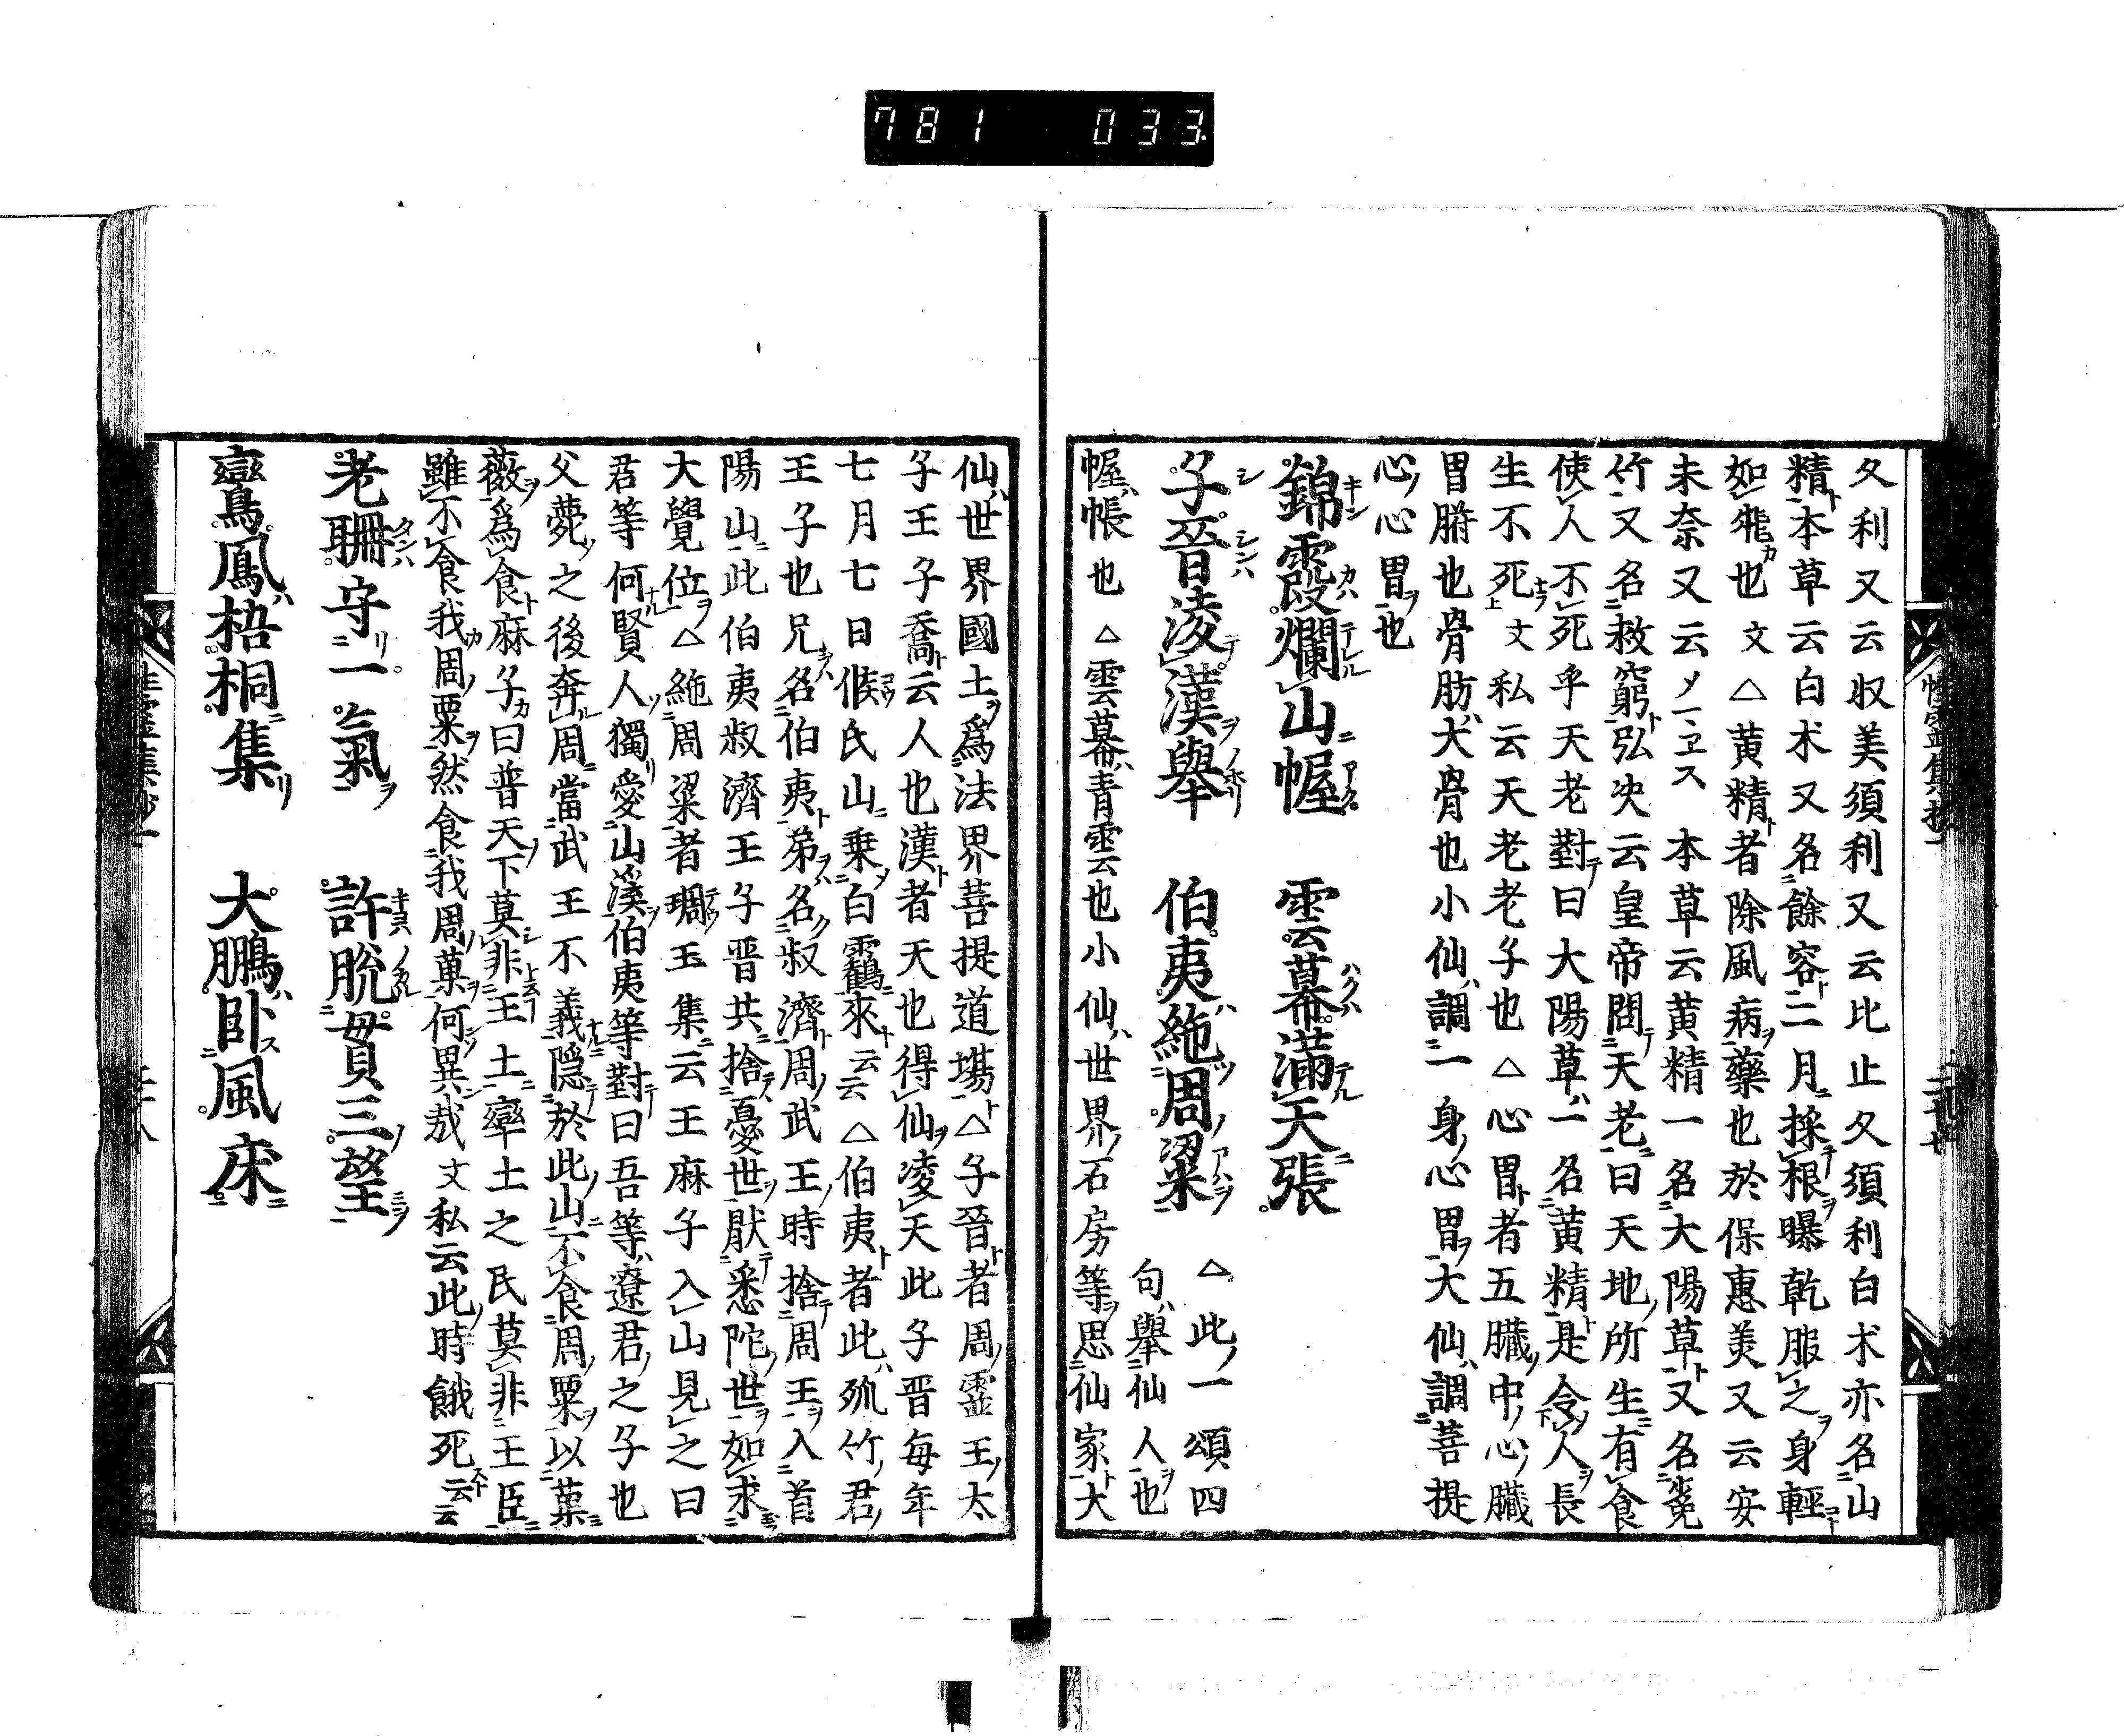 781 033
久利又云収美須利又云比止久須利白朮亦名山
精本草云白朮又名餘容二月採根曝乾服之身輕
如飛也文△黄精者除風病藥也於保惠美又云安
末奈又云ノ一ヱス本草云黄精一名大陽草又名菟
竹又名救窮弘决云皇帝問天老曰天地所生有食
使人不死乎天老對曰大陽草一名黄精是令人長
生不死文私云天老老子也△心胃者五臓中心臓
胃腑也骨肪犬骨也小仙調一身心胃大仙調菩提
心心胃也
錦霞爛山幄　雲幕滿天張
子晉凌漢擧　伯夷絁周粱　△此一頌四
句擧仙人也
幄帳也△雲幕青雲也小仙世界石房等思仙家大
仙世界國土為法界菩提道塲△子晉者周霊王太
子王子喬云人也漢者天也得仙凌天此子晋毎年
七月七日㑋氏山乗白鶴來云云△伯夷者此孤竹君
王子也兄名伯夷弟名叔濟周武王時捨周王入首
陽山此伯夷叔濟王子晋共捨憂世猒悉陀世如求
大覺位△絁周粱者琱玉集云王麻子入山見之曰
君等何賢人獨愛山溪伯夷等對曰吾等遼君之子也
父薨之後奔周當武王不義隠於此山不食周粟以菓
薇為食麻子曰普天下莫非王土率土之民莫非王臣
雖不食我周粟然食我周菓何異哉文私云此時餓死云云
老聃守一氣　許脱貫三望
鸞鳳梧桐集　大鵬臥風床